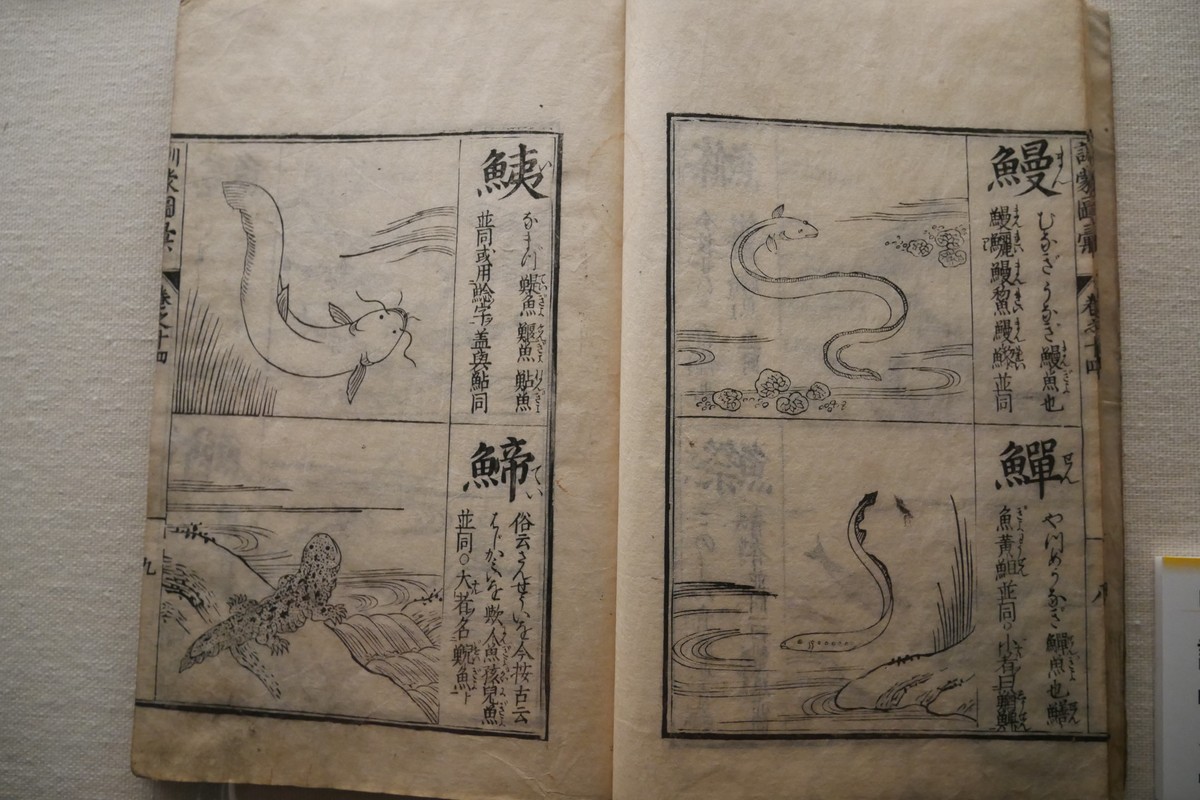 訓蒙圖彙 卷之十四 八
鰻 まん
むなぎ うなぎ 鰻魚也
鰻鱺 鰻鯬 鰻鯠 並同
鱓 せん
やつめうなぎ 鱓魚也 鱔
魚 黄䱇 並同○小者曰
鮧 い
なまづ 鯷魚 鰋魚 鮎魚
並同或用鯰字蓋與鮎同
䱱 てい
俗云さんせういを今按古云
はじかみいを歟人魚孩兒魚
並同○大者名鯢魚
訓蒙圖彙 卷之十四 九